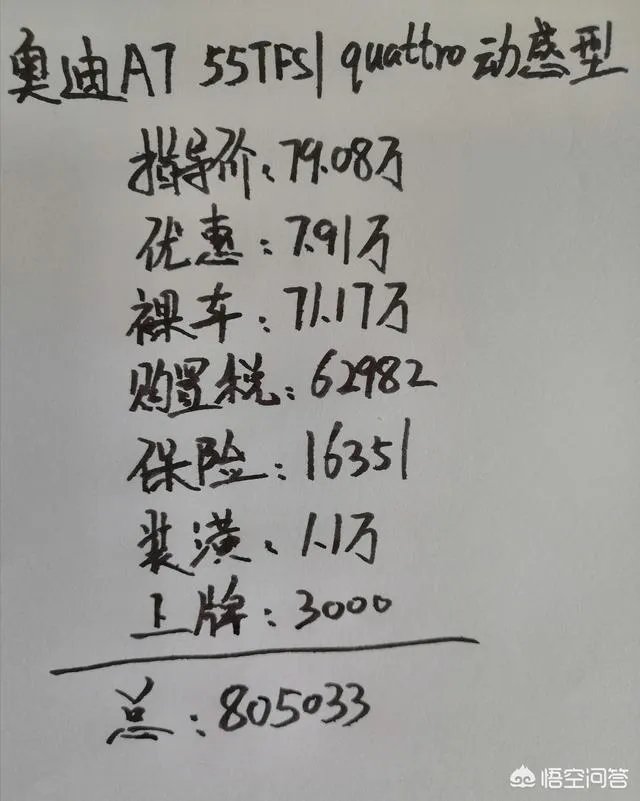 奥迪A7 55TFSI quattro动感型
指导价：79.08万
优惠：7.91万
裸车：71.17万
购置税：62982
保险：16351
装潢：1.1万
上牌：3000
总：805033
悟空问答